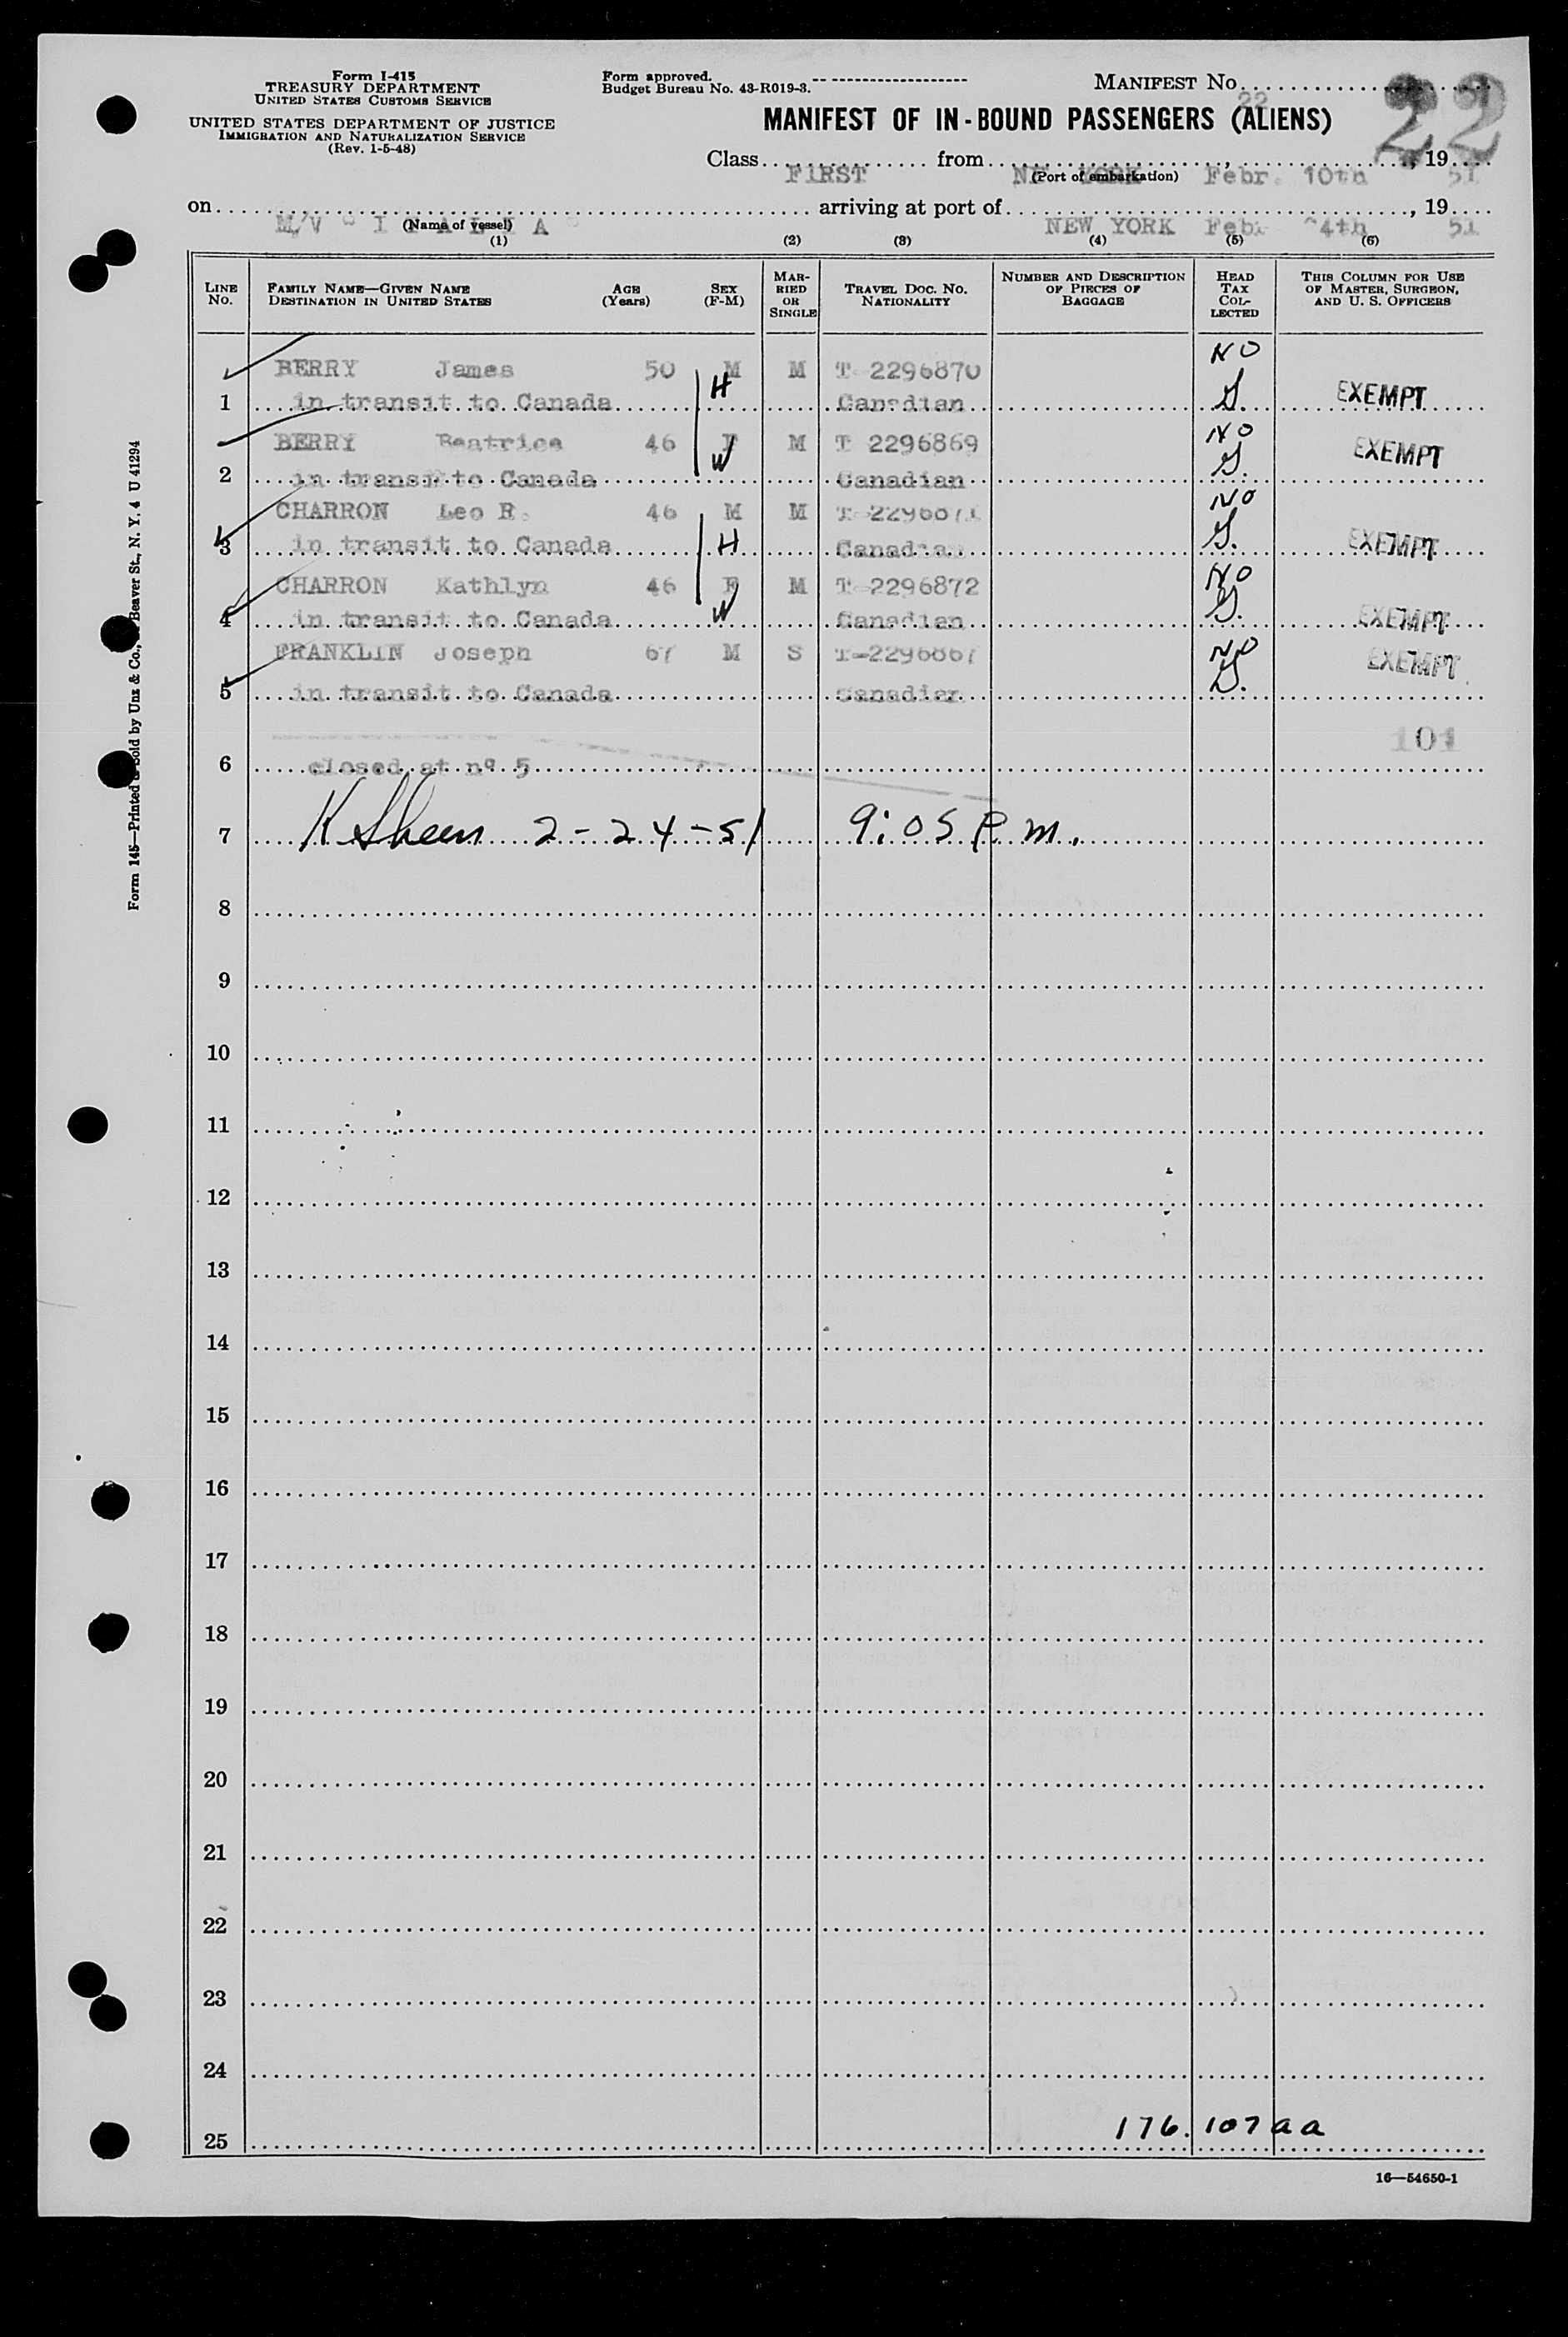 Form I-415
TREASURY DEPARTMENT
UNITED STATES CUSTOMS SERVICE
UNITED STATES DEPARTMENT OF JUSTICE
IMMIGRATION AND NATURALIZATION SERVICE
(Rev. 1-5-48)
Form approved.
Budget Bureau No. 43-R019-3.
MANIFEST No. 22
22
MANIFEST OF IN-BOUND PASSENGERS (ALIENS)
Class FIRST from NEW YORK Febr. 10th, 19 51
(Port of embarkation)
on M/V "ITALIA" arriving at port of NEW YORK Febr 24th, 19 51
(Name of vessel)
(1) (2) (3) (4) (5) (6)
LINE No. FAMILY NAME—GIVEN NAME DESTINATION IN UNITED STATES AGE (Years) SEX (F-M) MARRIED OR SINGLE TRAVEL DOC. No. NATIONALITY NUMBER AND DESCRIPTION OF PIECES OF BAGGAGE HEAD TAX COLLECTED THIS COLUMN FOR USE OF MASTER, SURGEON, AND U. S. OFFICERS
BERRY James 50 M M T- 2296870 NO
1 in transit to Canada H Canadian S. EXEMPT
BERRY Beatrice 46 F M T 2296869 NO
2 in transit to Canada W Canadian S. EXEMPT
CHARRON Leo R. 46 M M T-2296871 NO
3 in transit to Canada H Canadian S. EXEMPT
CHARRON Kathlyn 46 F M T-2296872 NO
4 in transit to Canada W Canadian S. EXEMPT
FRANKLIN Joseph 67 M S T-2296867 NO
5 in transit to Canada Canadian S. EXEMPT
101
6 closed at nº 5
7 K Sheen 2-24-51 9:05 P.m.
8
9
10
11
12
13
14
15
16
17
18
19
20
21
22
23
24
176.107aa
25
16—54650-1
Form 145—Printed & Sold by Unz & Co., Beaver St., N. Y. 4 U 41294